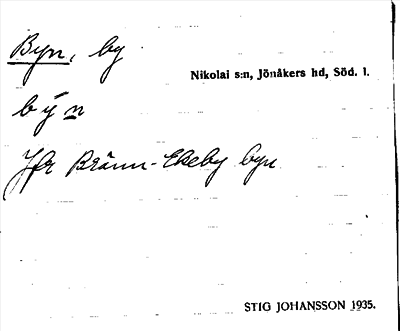 Byn, by
Nikolai s:n, Jönåkers hd, Söd. l.
bẏn
Jfr Bränn-Ekeby byn
STIG JOHANSSON 1935.